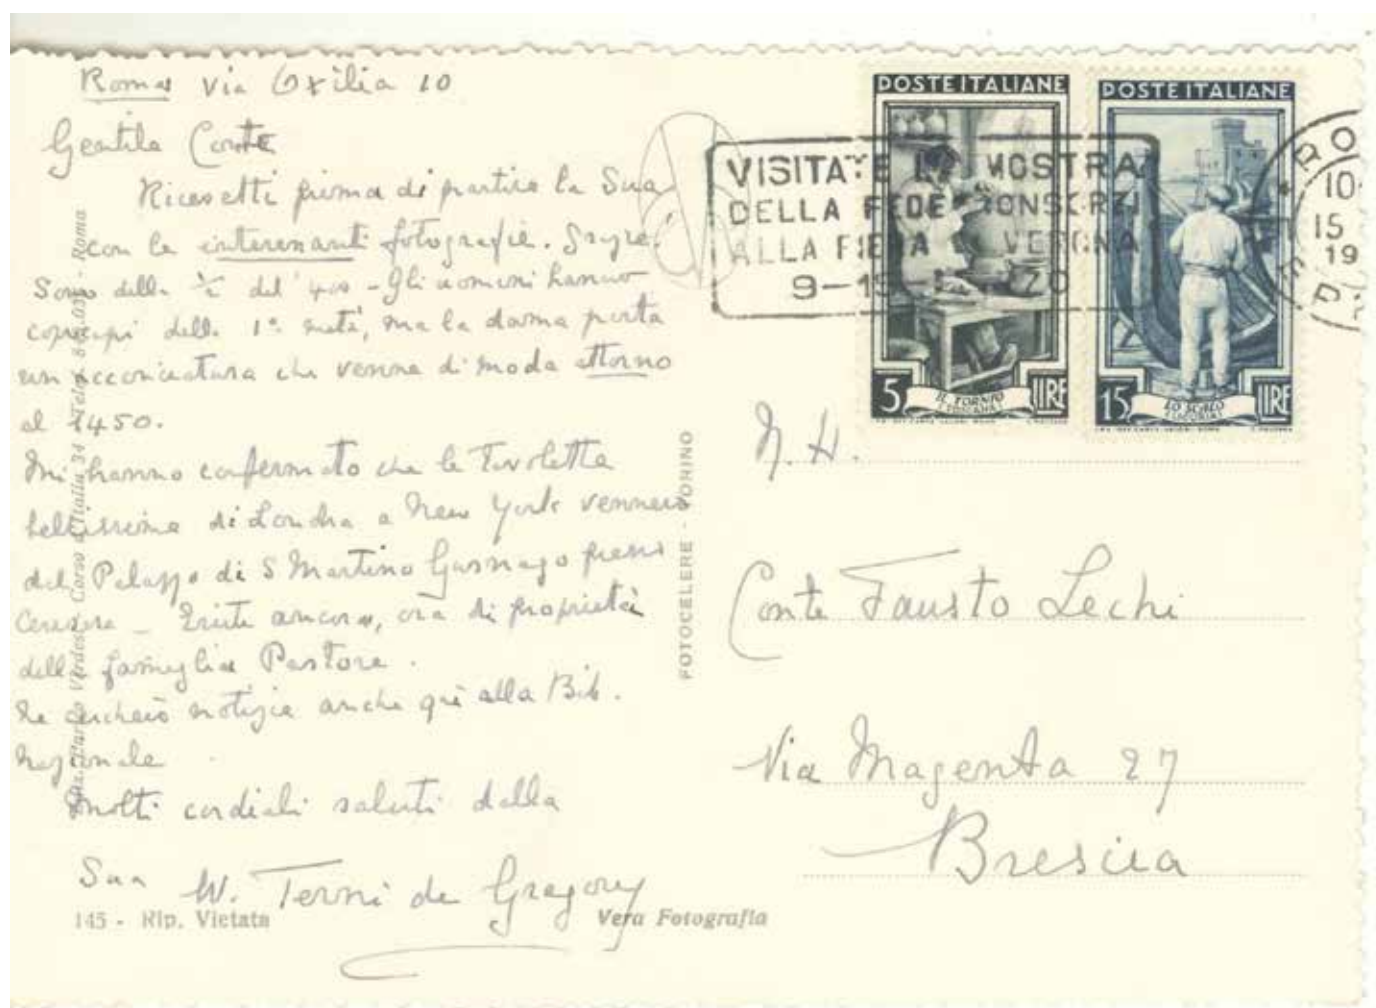 Roma Via Oxilia 10
Gentile Conte
Ricevetti prima di partire la Sua
con le interessanti fotografie.
Sono della ½ del '400 - Gli uomini hanno
copricapi della 1ª metà, ma la dama porta
un'acconciatura che venne di moda attorno
al 1450.
Mi hanno confermato che le Tavolette
bellissime di Londra e New York vennero
dal Palazzo di S Martino Gusnago presso
Ceresara - Esiste ancora, ora di proprietà
della famiglia Pastore.
Ne cercherò notizie anche quì alla Bib.
Nazionale
Molti cordiali saluti dalla
Sua W. Terni de Gregory
145 - Rip. Vietata
Vera Fotografia
Corso d'Italia 34 - Roma
FOTOCELERE - TORINO
POSTE ITALIANE
5 LIRE
IL TORNIO
POSTE ITALIANE
15 LIRE
LO SCALO
VISITATE LA MOSTRA
DELLA FEDERCONSORZI
ALLA FIERA DI VERONA
N. H.
Conte Fausto Lechi
Via Magenta 27
Brescia